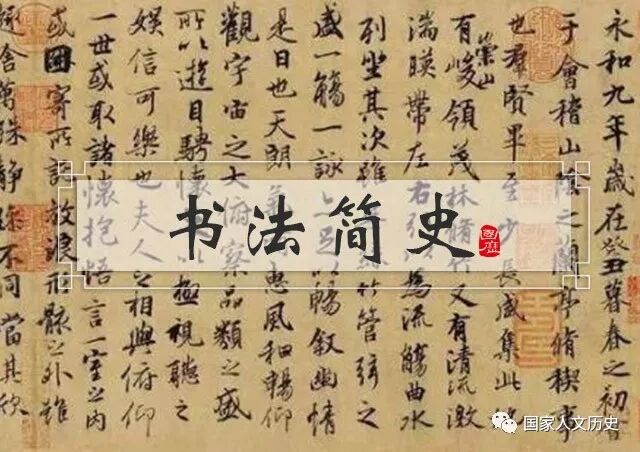 永和九年歲在癸丑暮春之初會
于會稽山陰之蘭亭脩稧事
也羣賢畢至少長咸集此地
崇山
有峻領茂林脩竹又有清流激
湍暎帶左右引以為流觴曲水
列坐其次雖絲竹管弦之
盛一觴一詠足以暢叙幽情
是日也天朗惠風和暢仰
觀宇宙之大俯察品類之盛
所以遊目騁懷以極視聽之
娛信可樂也夫人之相與俯仰
一世或取諸懷抱悟言一室之內
或因寄所託放浪形骸之外雖
趣舍萬殊靜躁不同當其欣
书法简史
国家人文历史